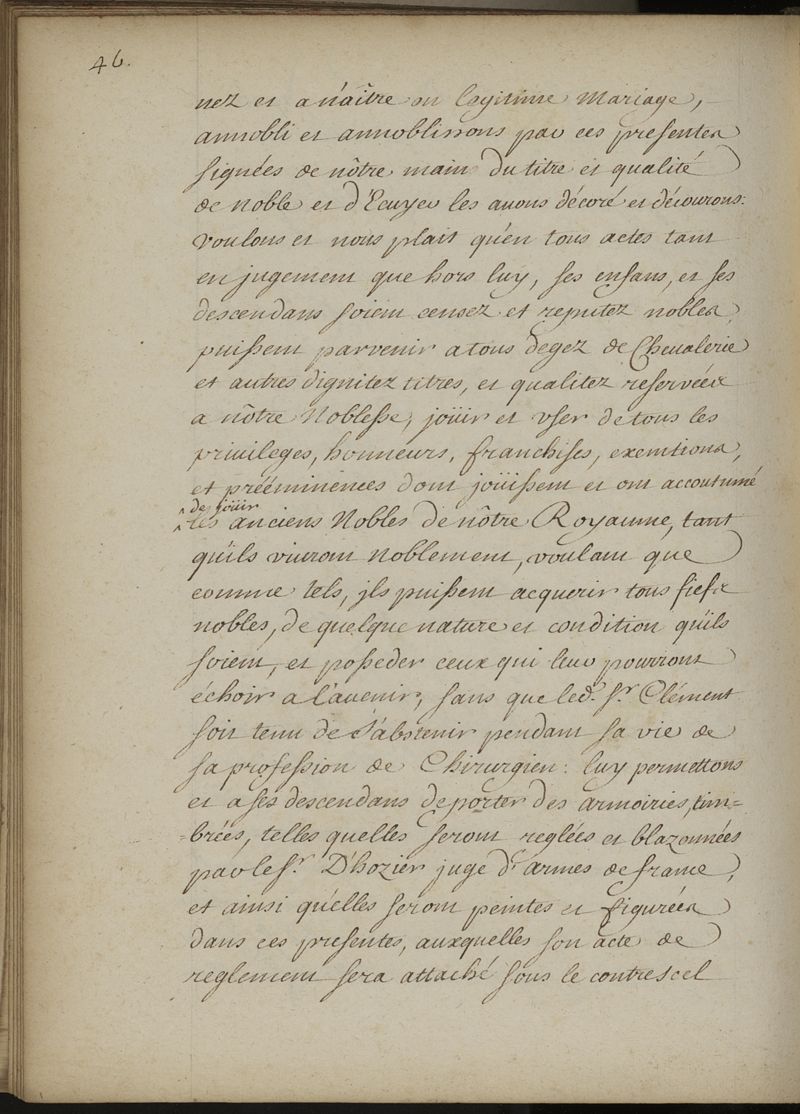 46.
nez et a naître en legitime Mariage,
annobli et annoblissons par ces presentes
signées de nôtre main du titre et qualité
de noble et d'Ecuyer les auons décoré et décorons:
voulons et nous plait qu'en tous actes tant
en jugement que hors luy, ses enfans, et ses
descendans soient censez et reputez nobles
puissent parvenir a tous degez de Cheualerie
et autres dignitez titres, et qualitez reservées
a nôtre Noblesse, joüir et vser de tous les
priuileges, honneurs, franchises, exemtions,
et prééminences dont joüissent et ont accoutumé
de joüir
les anciens Nobles de nôtre Royaume, tant
qu'ils viuront noblement, voulant que
comme tels, jls puissent acquerir tous fiefs
nobles, de quelque nature et condition qu'ils
soient, et posseder ceux qui leur pourront
échoir a l'auenir, sans que led. Sr. Clément
soit tenu de s'abstenir pendant sa vie de
sa profession de Chirurgien: luy permettons
et a ses descendans de porter des armoiries, tim=
=brées, telles quelles seront reglées et blazonnées
par le Sr. D'hozier juge d'armes de france,
et ainsi qu'elles seront peintes et figurées
dans ces presentes, auxquelles son acte de
reglement sera attaché sous le contrescel